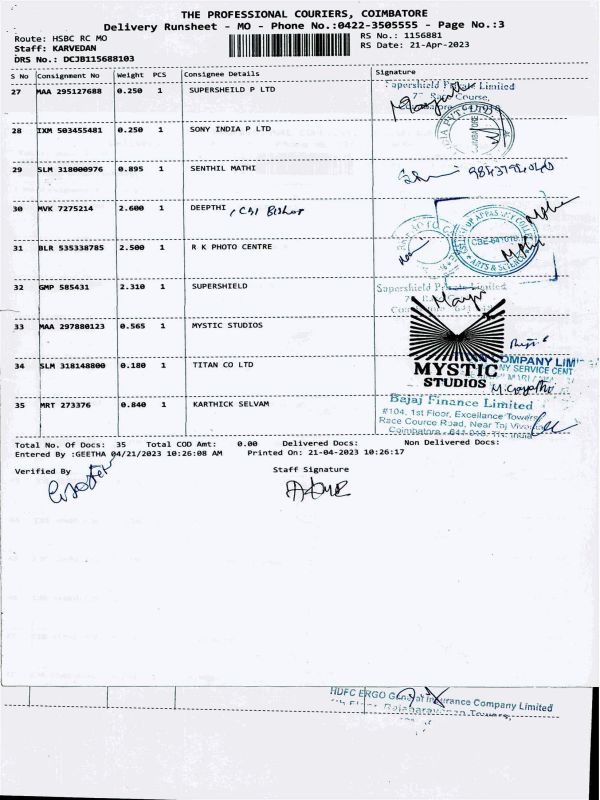 THE PROFESSIONAL COURIERS, COIMBATORE
Delivery Runsheet - MO - Phone No.:0422-3505555 - Page No.:3
Route: HSBC RC MO
RS No.: 1156881
Staff: KARVEDAN
RS Date: 21-Apr-2023
DRS No.: DCJB115688103
S No Consignment No Weight PCS Consignee Details Signature
27 MAA 295127688 0.250 1 SUPERSHEILD P LTD
Private Limited
Race Course,
28 IXM 503455481 0.250 1 SONY INDIA P LTD
29 SLM 318000976 0.895 1 SENTHIL MATHI
30 MVK 7275214 2.600 1 DEEPTHI, CSI Bishop
31 BLR 535338785 2.500 1 R K PHOTO CENTRE
ARTS & SCIENCE
32 GMP 585431 2.310 1 SUPERSHIELD
Supershield Private Limited
33 MAA 297880123 0.565 1 MYSTIC STUDIOS
MYSTIC
STUDIOS
34 SLM 318148800 0.180 1 TITAN CO LTD
COMPANY LIM
NY SERVICE CENT
35 MRT 273376 0.840 1 KARTHICK SELVAM
Bajaj Finance Limited
#104, 1st Floor, Excellance Towers
Race Cource Road, Near Taj Vivanta
Total No. Of Docs: 35 Total COD Amt: 0.00 Delivered Docs: Non Delivered Docs:
Entered By :GEETHA 04/21/2023 10:26:08 AM Printed On: 21-04-2023 10:26:17
Verified By
Staff Signature
HDFC ERGO General Insurance Company Limited